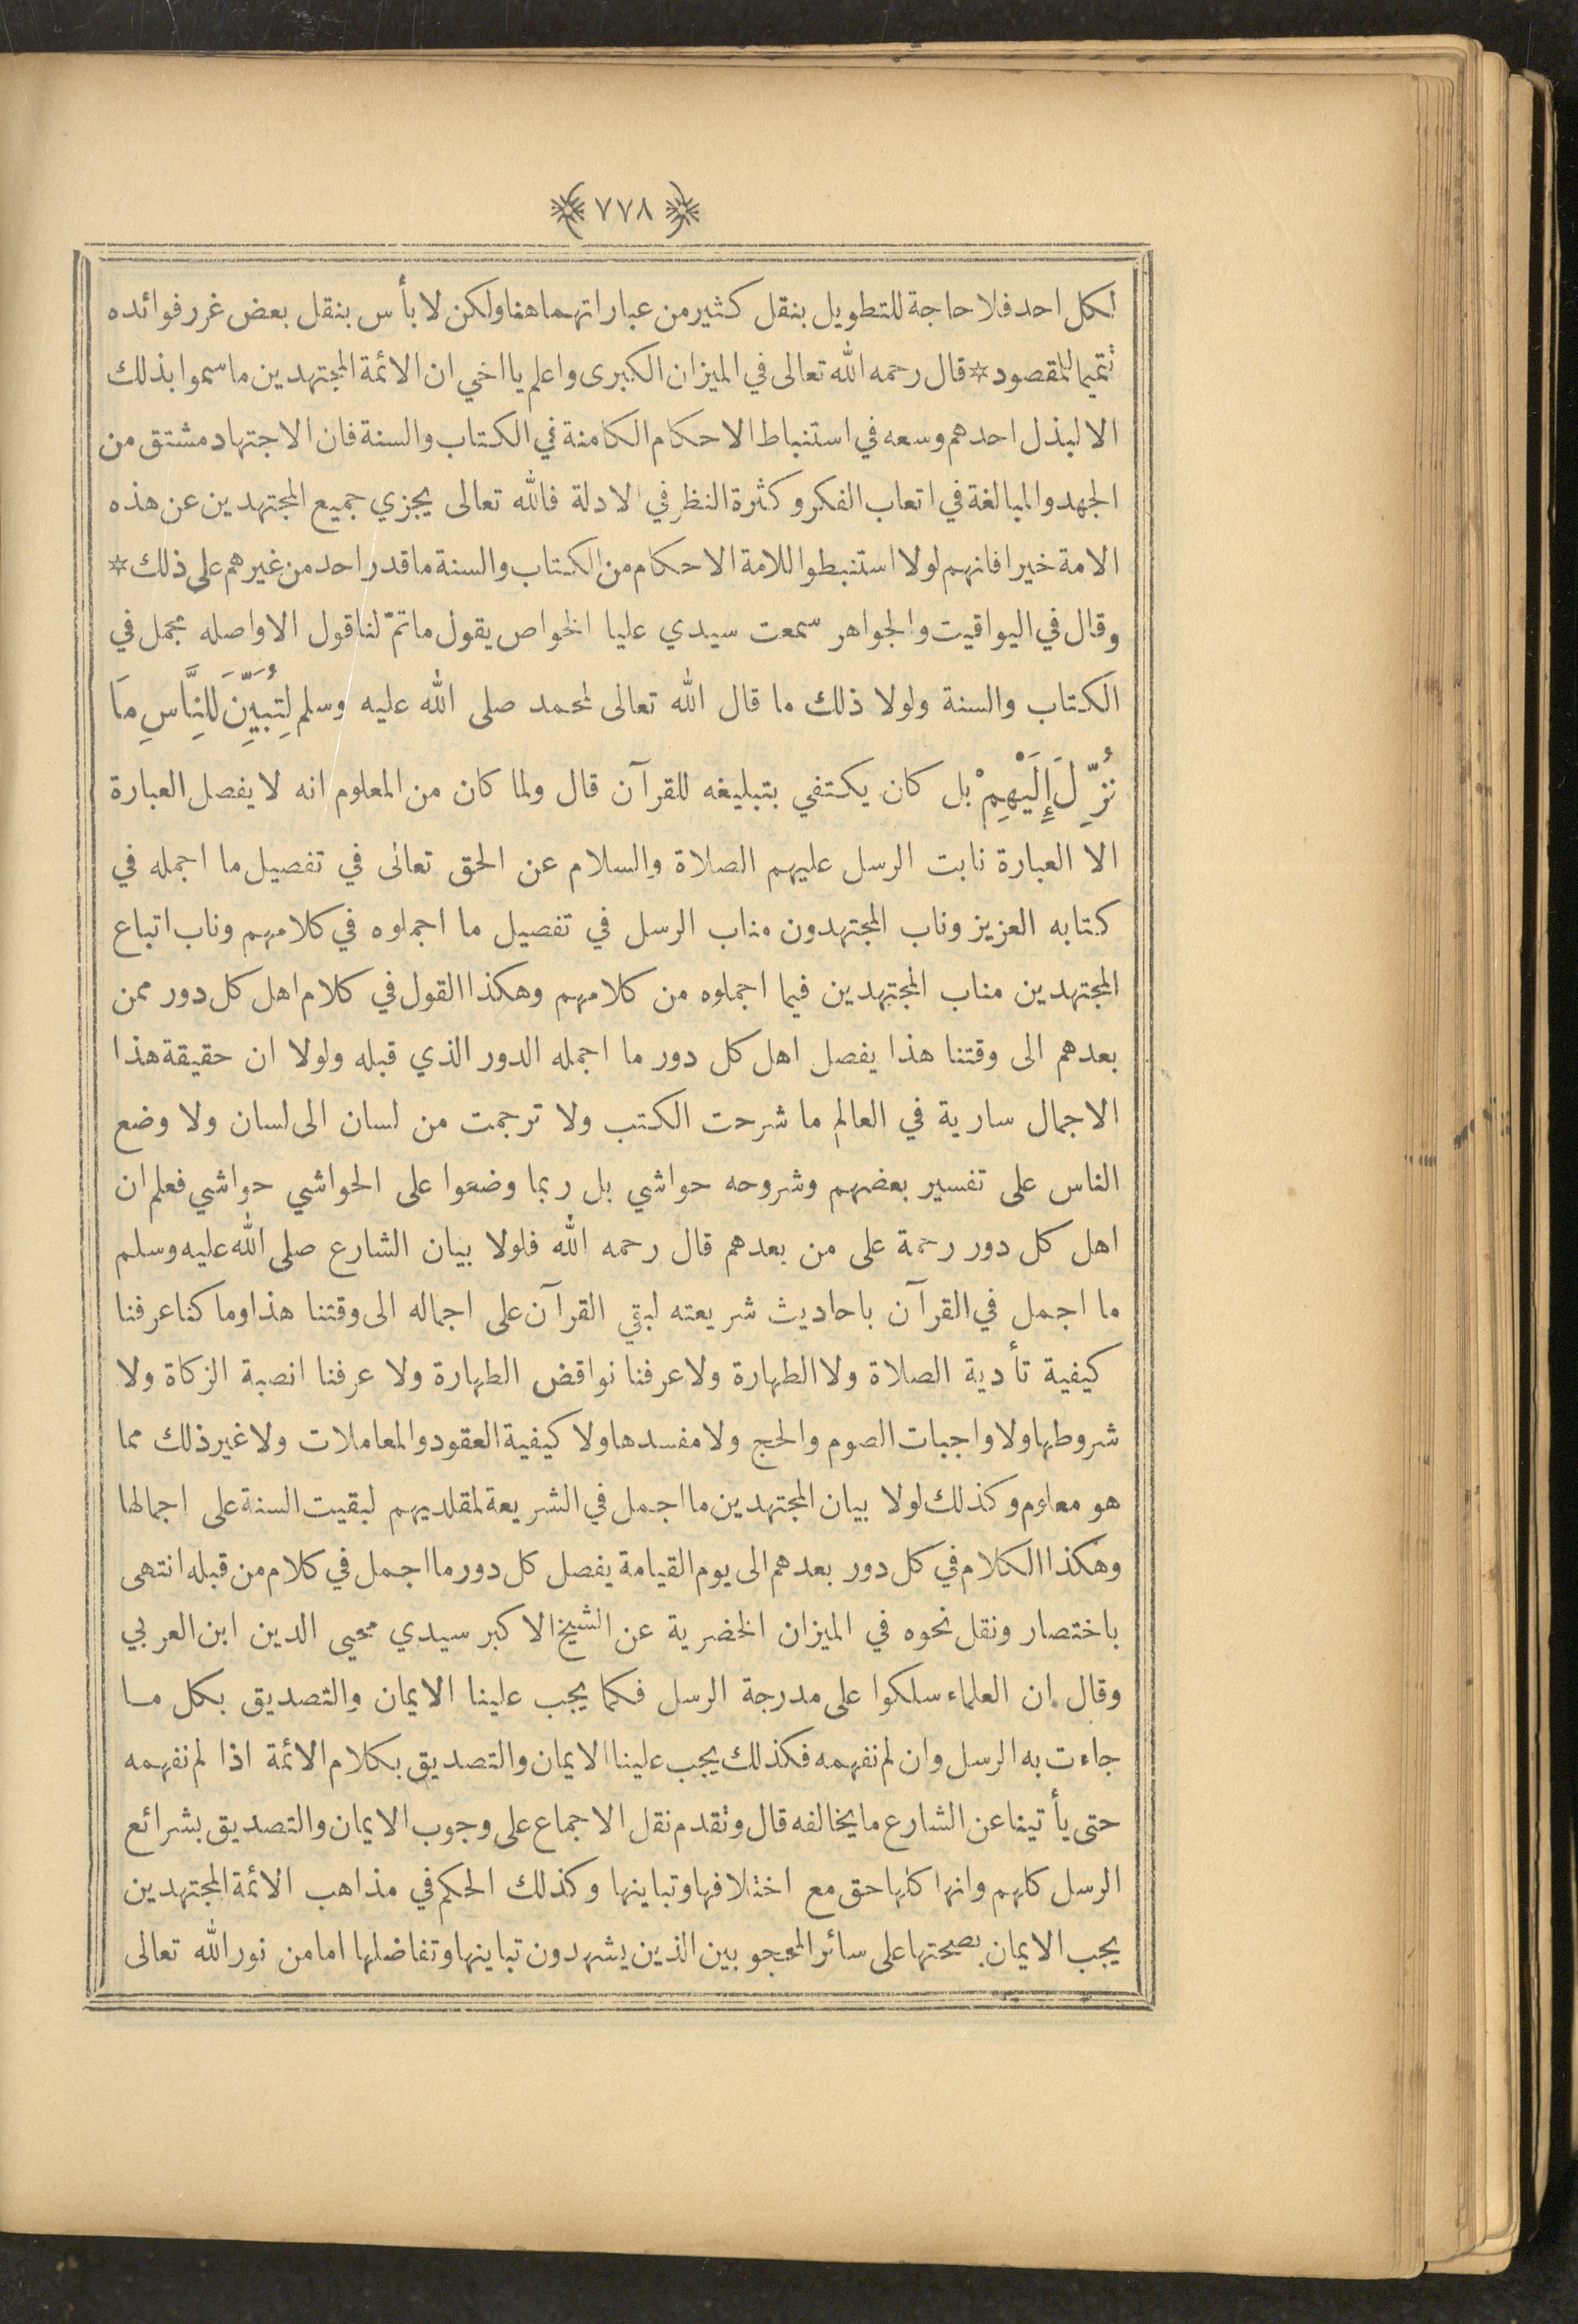 ﴿ ٧٧٨ ﴾
لكل احد فلا حاجة للتطويل بنقل كثير من عباراتهما هنا ولكن لا بأس بنقل بعض غرر فوائده
تتميما للمقصود * قال رحمه الله تعالى في الميزان الكبرى واعلم يا اخي ان الائمة المجتهدين ما سموا بذلك
الا لبذل احدهم وسعه في استنباط الاحكام الكامنة في الكتاب والسنة فان الاجتهاد مشتق من
الجهد والمبالغة في اتعاب الفكر وكثرة النظر في الادلة فالله تعالى يجزي جميع المجتهدين عن هذه
الامة خيرا فانهم لولا استنبطوا للامة الاحكام من الكتاب والسنة ما قدر احد من غيرهم على ذلك *
وقال في اليواقيت والجواهر سمعت سيدي عليا الخواص يقول ما تمّ لنا قول الا واصله مجمل في
الكتاب والسنة ولولا ذلك ما قال الله تعالى لمحمد صلى الله عليه وسلم لِتُبَيِّنَ لِلنَّاسِ مَا
نُزِّلَ إِلَيْهِمْ بل كان يكتفي بتبليغه للقرآن قال ولما كان من المعلوم انه لا يفصل العبارة
الا العبارة نابت الرسل عليهم الصلاة والسلام عن الحق تعالى في تفصيل ما اجمله في
كتابه العزيز وناب المجتهدون مناب الرسل في تفصيل ما اجملوه في كلامهم وناب اتباع
المجتهدين مناب المجتهدين فيما اجملوه من كلامهم وهكذا القول في كلام اهل كل دور ممن
بعدهم الى وقتنا هذا يفصل اهل كل دور ما اجمله الدور الذي قبله ولولا ان حقيقة هذا
الاجمال سارية في العالم ما شرحت الكتب ولا ترجمت من لسان الى لسان ولا وضع
الناس على تفسير بعضهم وشروحه حواشي بل ربما وضعوا على الحواشي حواشي فعلم ان
اهل كل دور رحمة على من بعدهم قال رحمه الله فلولا بيان الشارع صلى الله عليه وسلم
ما اجمل في القرآن باحاديث شريعته لبقي القرآن على اجماله الى وقتنا هذا وما كنا عرفنا
كيفية تأدية الصلاة ولا الطهارة ولا عرفنا نواقض الطهارة ولا عرفنا انصبة الزكاة ولا
شروطها ولا واجبات الصوم والحج ولا مفسدها ولا كيفية العقود والمعاملات ولا غير ذلك مما
هو معلوم وكذلك لولا بيان المجتهدين ما اجمل في الشريعة لمقلديهم لبقيت السنة على اجمالها
وهكذا الكلام في كل دور بعدهم الى يوم القيامة يفصل كل دور ما اجمل في كلام من قبله انتهى
باختصار ونقل نحوه في الميزان الخضرية عن الشيخ الاكبر سيدي محيى الدين ابن العربي
وقال ان العلماء سلكوا على مدرجة الرسل فكما يجب علينا الايمان والتصديق بكل ما
جاءت به الرسل وان لم نفهمه فكذلك يجب علينا الايمان والتصديق بكلام الائمة اذا لم نفهمه
حتى يأتينا عن الشارع ما يخالفه قال وتقدم نقل الاجماع على وجوب الايمان والتصديق بشرائع
الرسل كلهم وانها كلها حق مع اختلافها وتباينها وكذلك الحكم في مذاهب الائمة المجتهدين
يجب الايمان بصحتها على سائر المحجوبين الذين يشهدون تباينها وتفاضلها اما من نور الله تعالى